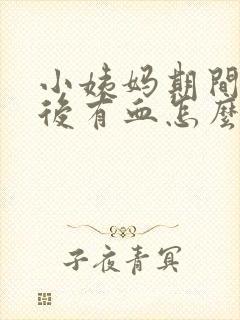 小姨妈期間
後有血怎麼
子夜青冥